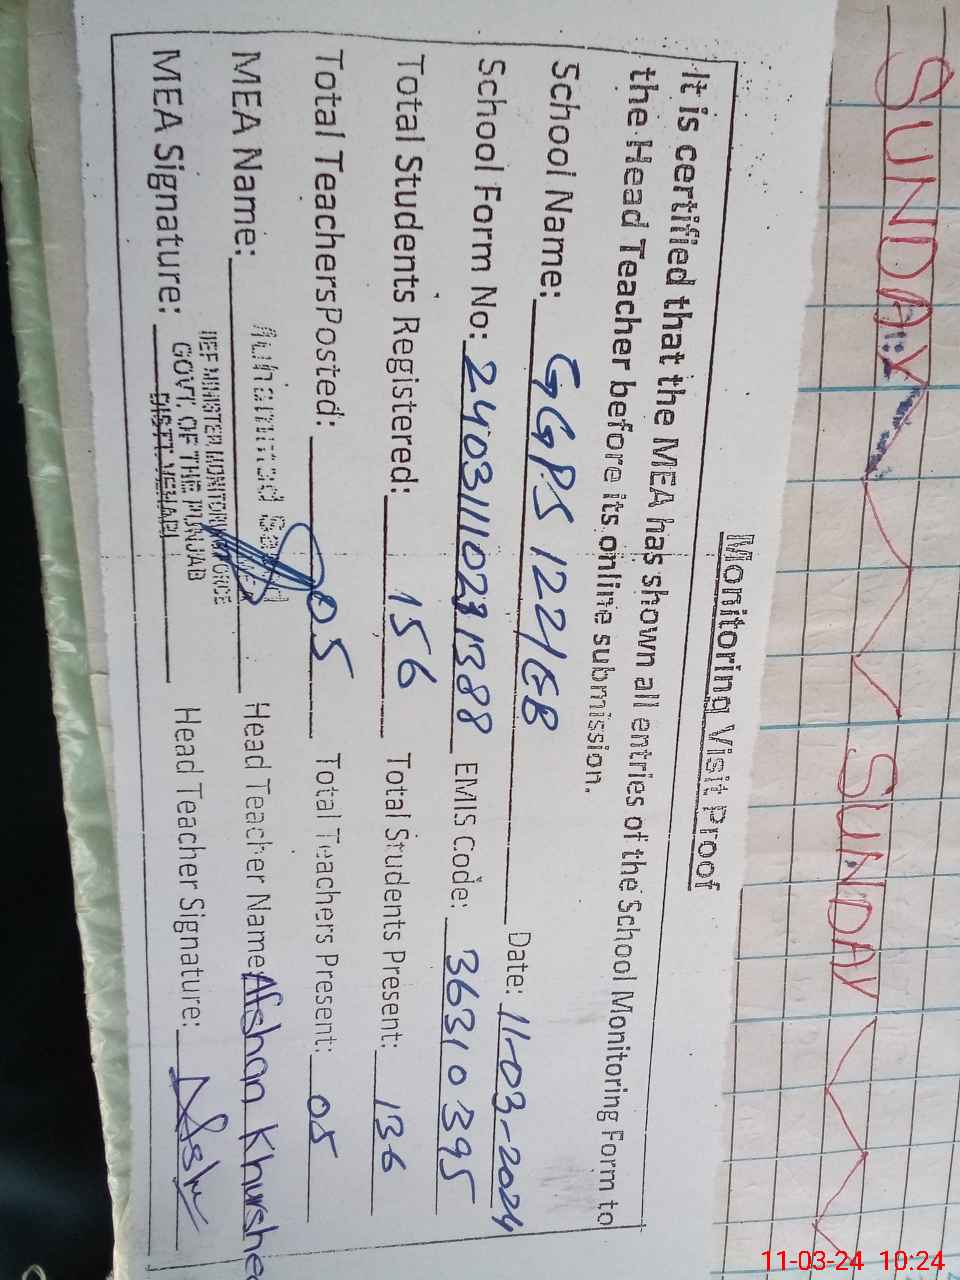 SUNDAY SUNDAY
Monitoring Visit Proof
It is certified that the MEA has shown all entries of the School Monitoring Form to
the Head Teacher before its online submission.
School Name: GGPS 122/EB Date: 11-03-2024
School Form No: EMIS Code: 36310395
Total Students Registered: 156 Total Students Present: 136
Total Teachers Posted: 05 Total Teachers Present: 05
MEA Name: Muhammad Head Teacher Name: Afshan Khurshee
MEA Signature: Head Teacher Signature:
GOVT. OF THE PUNJAB
DISTT. VEHARI
11-03-24 10:24